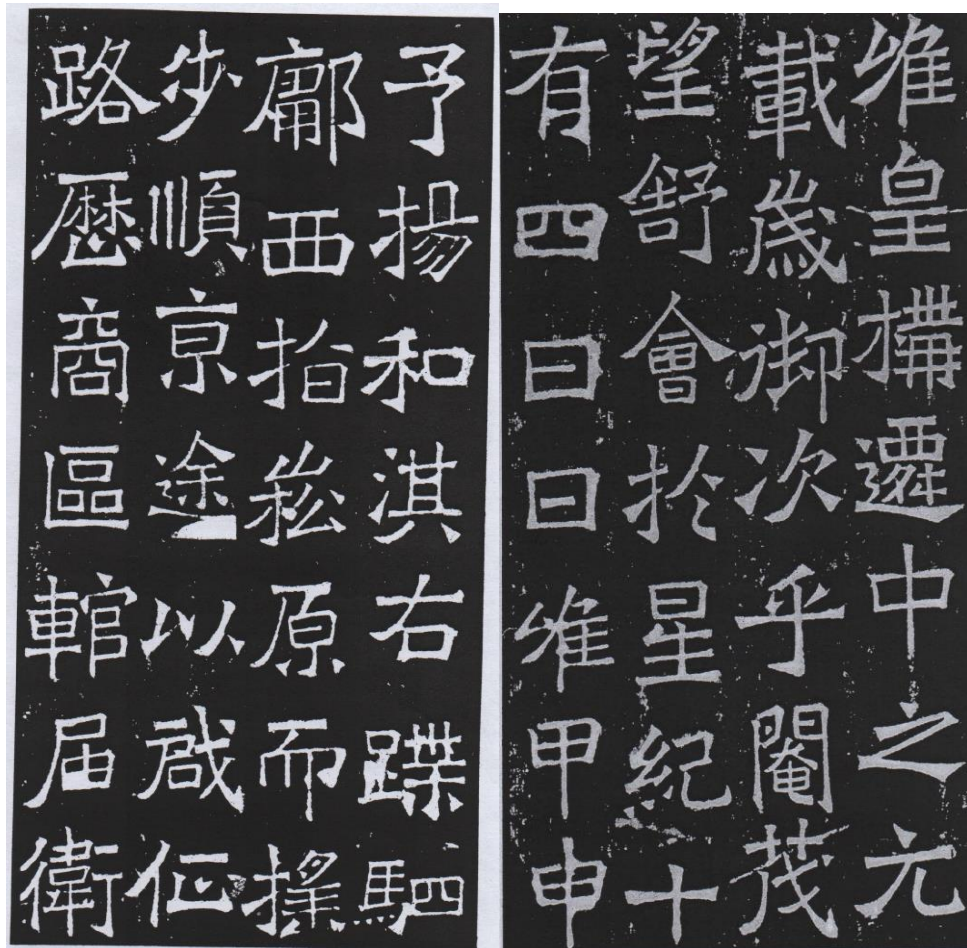 惟皇搆遷中之元
載歲御次乎閹茂
望舒會於星紀十
有四日日惟甲申
予揚和淇右蹀駟
鄘西指崧原而搖
步順京途以啟征
路歷商區輨届衛